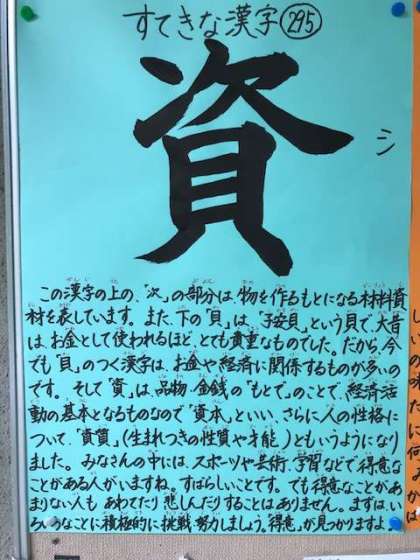 すてきな漢字 295
資
シ
この漢字の上の、「次」の部分は、物を作るもとになる材料資
材を表しています。また、下の「貝」は、「子安貝」という貝で、大昔
は、お金として使われるほど、とても貴重なものでした。だから、今
でも「貝」のつく漢字は、お金や経済に関係するものが多いの
です。そして「資」は、品物、金銭の「もとで」のことで、経済活
動の基本となるものなので「資本」といい、さらに人の性格に
ついて、「資質」(生まれつきの性質や才能)ともいうようになり
ました。みなさんの中には、スポーツや芸術、学習などで得意な
ことがある人がいますね。すばらしいことです。でも得意なことがあ
まりない人も、あわてたり悲しんだりすることはありません。まずはい
ろいろなことに積極的に挑戦、努力しましょう。得意が見つかりますよ。